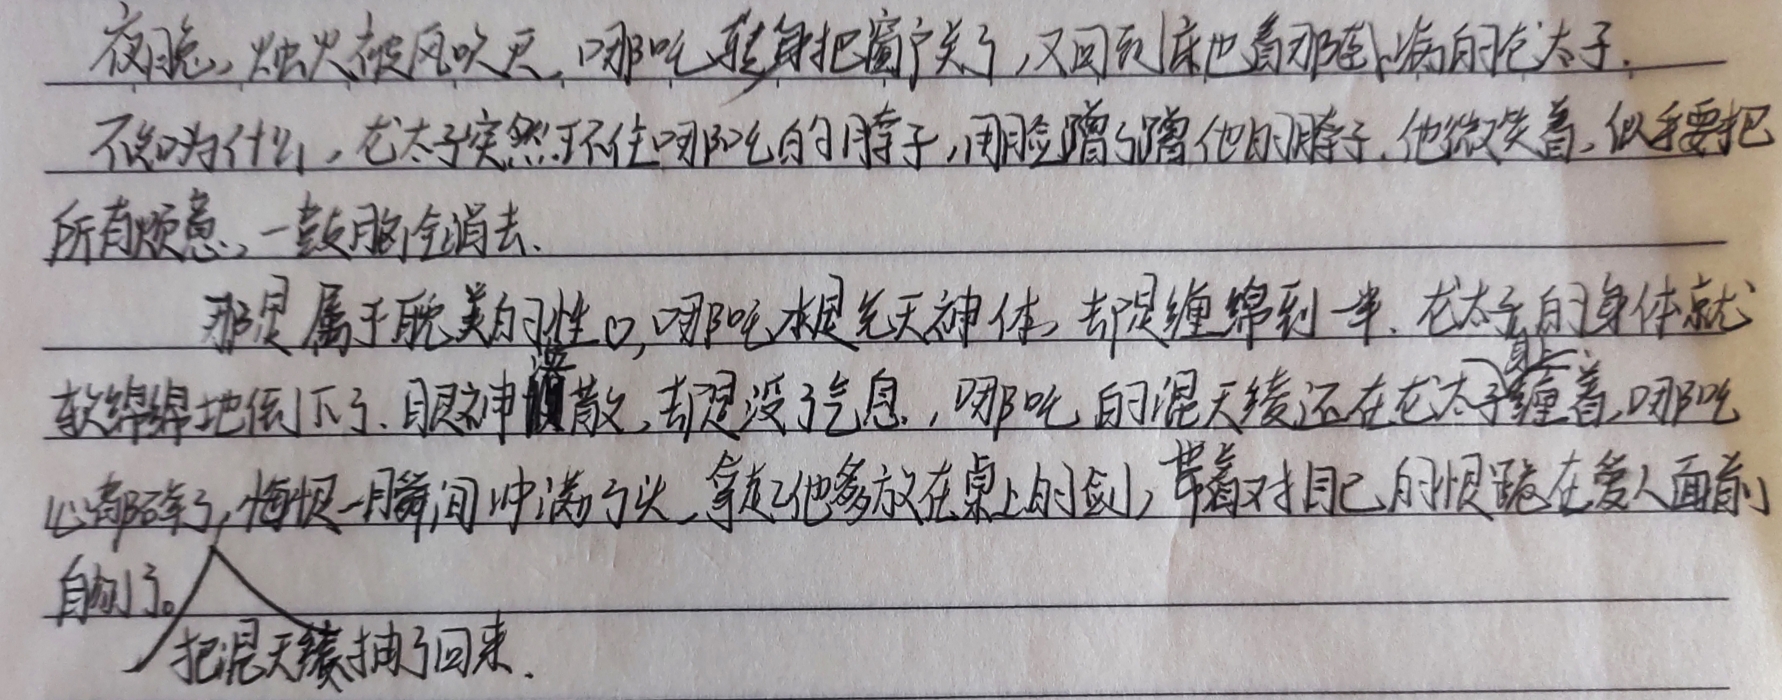 夜晚，烛火被风吹灭，哪吒转身把窗户关了，又回到床边看那生病的龙太子。
不知为什么，龙太子突然环住哪吒的脖子，用脸蹭了蹭他的脖子，他微笑着，似乎要把
所有烦恼，一鼓脑全消去。
那是属于耽美的习性，哪吒本是先天神体，却是缠绵到一半，龙太子的身体就
软绵绵地倒下了，眼神涣散，却是没了气息，哪吒的混天绫还在龙太子身上缠着，哪吒
心都碎了，悔恨一瞬间冲满了头，拿起他放在桌上的剑，带着对自己的恨跪在爱人面前
自刎了。
把混天绫抽了回来，